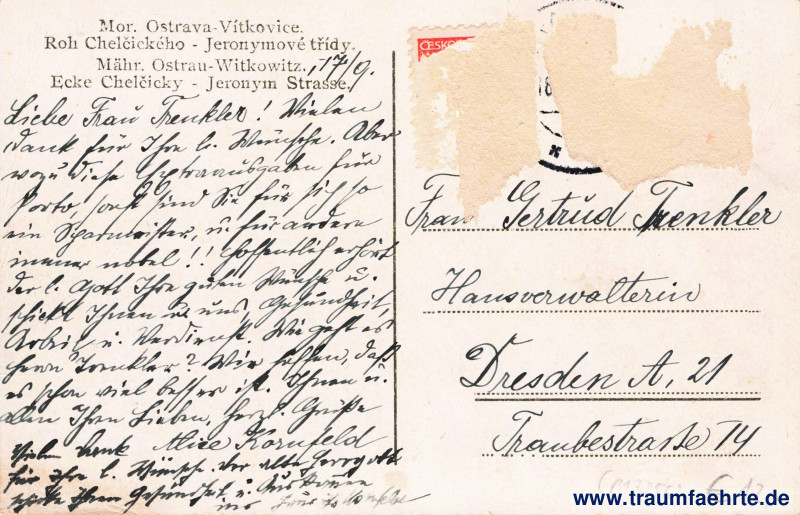 Mor. Ostrava-Vítkovice.
Roh Chelčického - Jeronymové třídy.
Mähr. Ostrau-Witkowitz.
Ecke Chelčicky - Jeronym Strasse.
17/9.
ČESKO
18
Liebe Frau Trenkler! Vielen
Dank für Ihre l. Wünsche. Aber
wozu diese Extraausgaben für
Porto, sonst sind Sie für sich so
ein Sparmeister, u. für andere
immer nobel!! Hoffentlich erhört
der l. Gott Ihre guten Wünsche u.
schickt Ihnen u. uns, Gesundheit,
Arbeit u. Verdienst. Wie geht es
Herrn Trenkler? Wir hoffen, daß
es schon viel besser ist. Ihnen u.
allen Ihren Lieben, herzl. Grüße
Alice Kornfeld
Vielen Dank
für Ihre l. Wünsche der alte Herrgott
schicke Ihnen Gesundheit u.
Frau Gertrud Trenkler
Hausverwalterin
Dresden A, 21
Traubestrasse 14
www.traumfaehrte.de